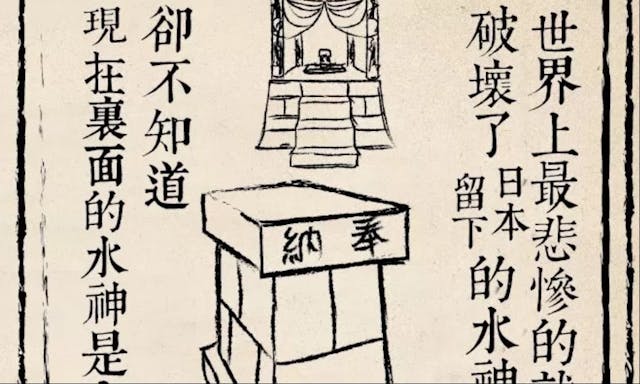 世界上最悲慘的
破壞了日本留下的水神
奉納
卻不知道
現在裏面的水神是